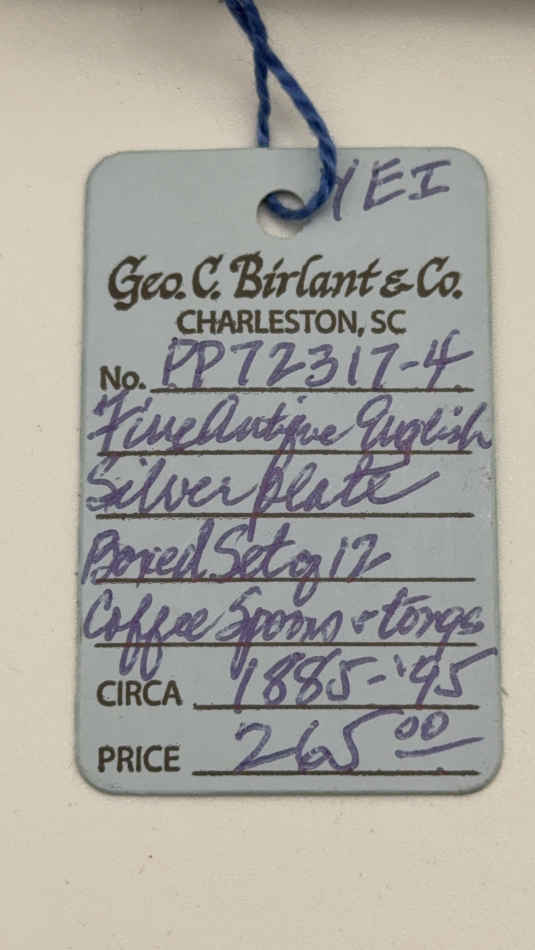 YEI
Geo. C. Birlant & Co.
CHARLESTON, SC
No. PP72317-4
Fine Antique English
Silver plate
Boxed Set of 12
Coffee Spoons & tongs
CIRCA 1885-'95
PRICE 265.00